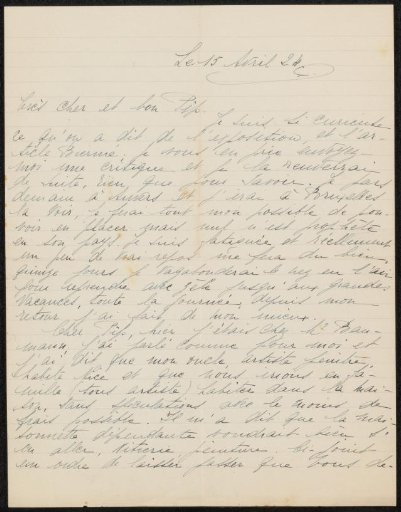 Le 15 Avril 24
Très cher et bon Pip.
Je suis si curieuse
ce qu'on a dit de l'exposition et l'ar-
ticle Burmé, je vous en prie
moi une critique et je la
de suite, rien que pour savoir. je pars
demain à Anvers et j'irai à Bruxelles
la voir, je ferai tout mon possible de pou-
voir en placer mais nul n'est prophète
en son pays. je suis et réellement
un peu de vrai repos me fera du bien,
quinze jours je vagabonderai le nez en l'air
pour reprendre avec zèle jusqu'aux grandes
vacances, toute la journée, depuis mon
retour j'ai fait de mon mieux.
Cher Pip, hier j'étais chez Mr Bau-
mann, j'ai parlé comme pour moi et
j'ai dit que mon oncle, artiste peintre,
habite Nice et que nous irions en fa-
mille (tous artistes) habiter dans la mai-
son, sans spéculations avec le moins de
frais possible. Il m'a dit que la mai-
sonnette dépendante voudrait bien s'
en aller, vitrerie peinture. Ci-joint
en outre de laisser passer que vous de-